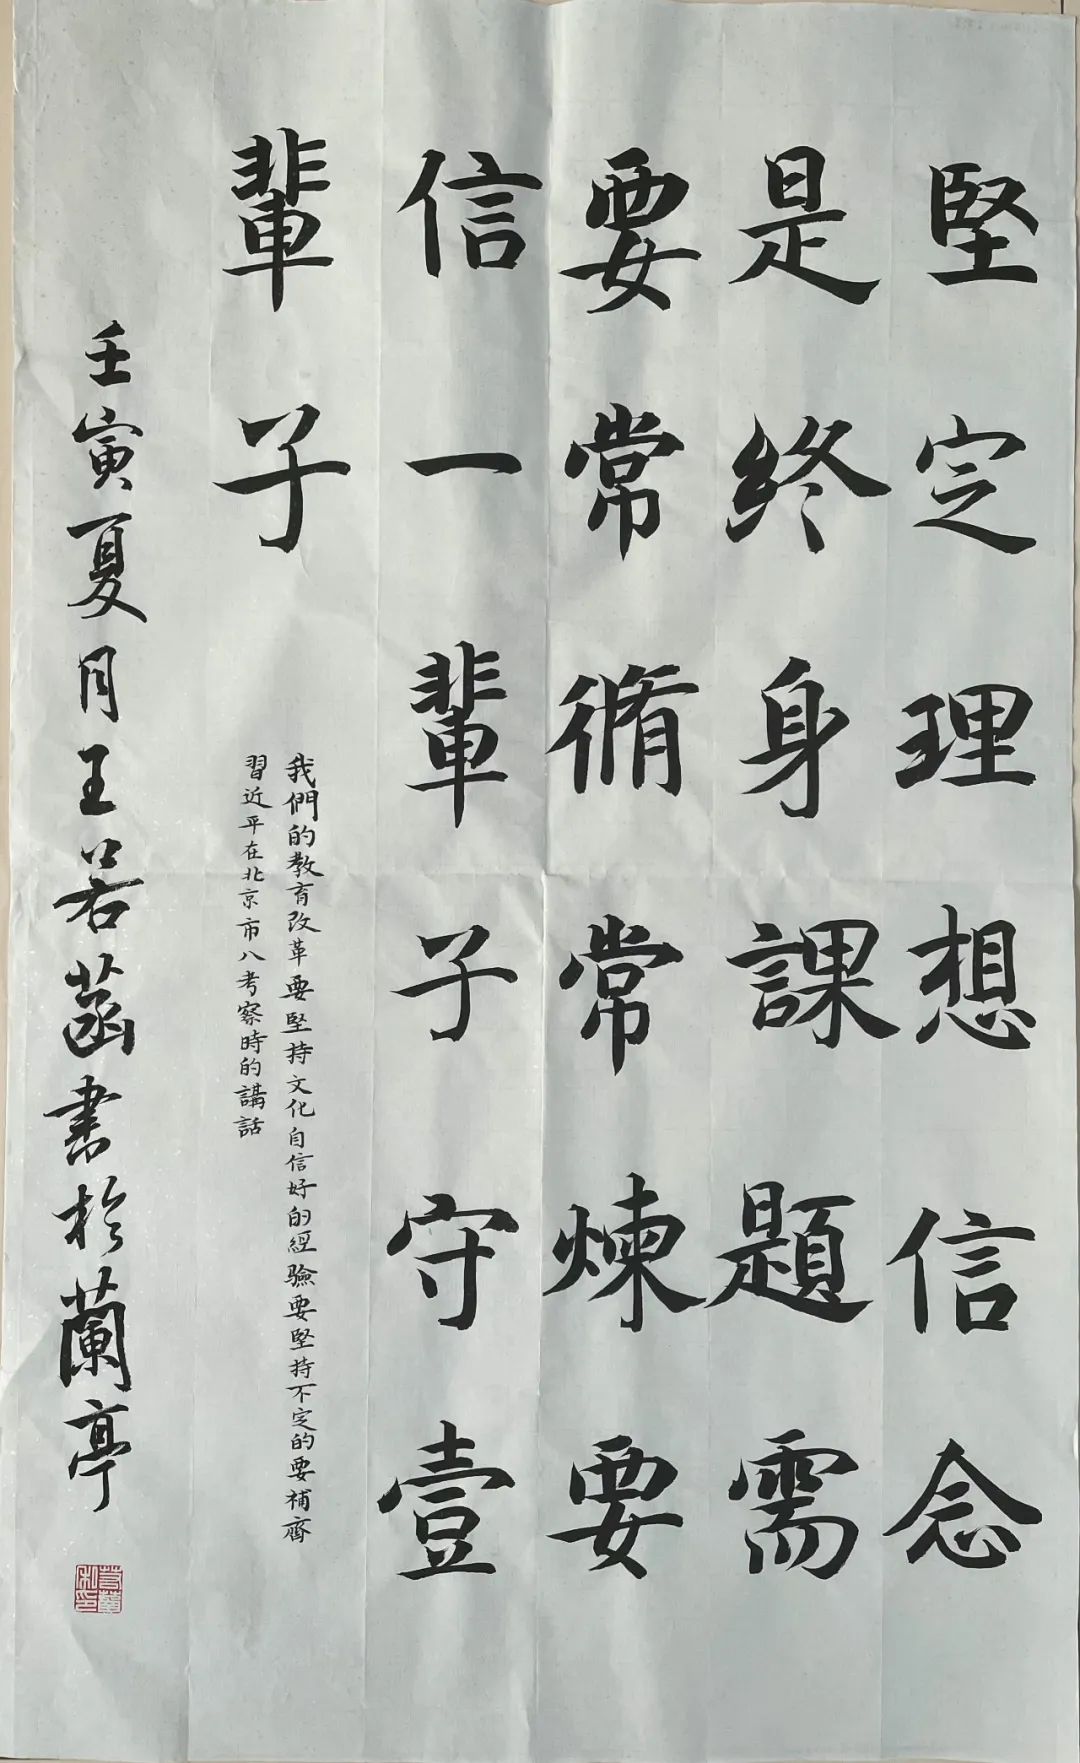 堅定理想信念
是終身課題需
要常脩常煉要
信一輩子守壹
輩子
我們的教育改革要堅持文化自信好的經驗要堅持不定的要補齊
習近平在北京市八考察時的講話
壬寅夏月王若菡書於蘭亭